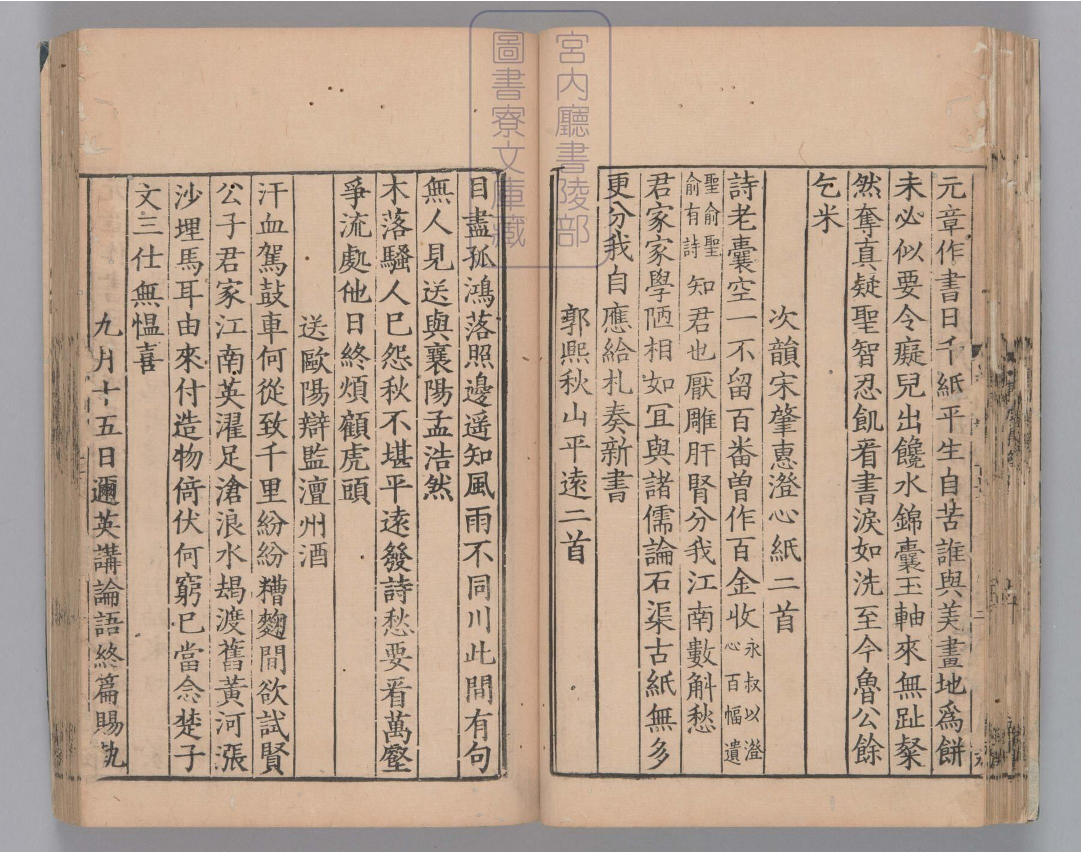 宮內廳書陵部
圖書寮文庫藏
元章作書日千紙平生自苦誰與美畫地爲餅
未必似要令癡兒出饞水錦囊玉軸來無趾粲
然奪真疑聖智忍飢看書淚如洗至今魯公餘
乞米
次韻宋肇惠澄心紙二首
詩老囊空一不留百畨曽作百金收永叔以澄心百幅遺
聖俞聖俞有詩知君也厭雕肝腎分我江南數斛愁
君家家學陋相如冝與諸儒論石渠古紙無多
更分我自應給札奏新書
郭熙秋山平遠二首
目盡孤鴻落照邊遥知風雨不同川此間有句
無人見送與襄陽孟浩然
木落騷人已怨秋不堪平遠發詩愁要看萬壑
爭流處他日終煩顧虎頭
送歐陽辯監澶州酒
汗血駕鼓車何從致千里紛紛糟麴間欲試賢
公子君家江南英濯足滄浪水朅渡舊黃河漲
沙埋馬耳由來付造物倚伏何窮已當念楚子
文三仕無愠喜
九月十五日邇英講論語終篇賜執